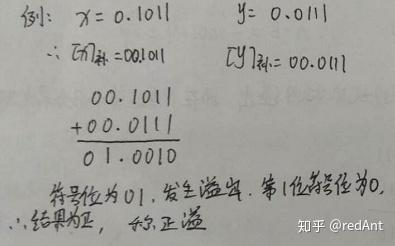 例: x = 0.1011 y = 0.0111
∴ [x]补 = 00.1011 [y]补 = 00.0111
00.1011
+00.0111
01.0010
符号位为01, 发生溢出. 第1位符号位为0,
∴ 结果为正, 称正溢
知乎 @redAnt